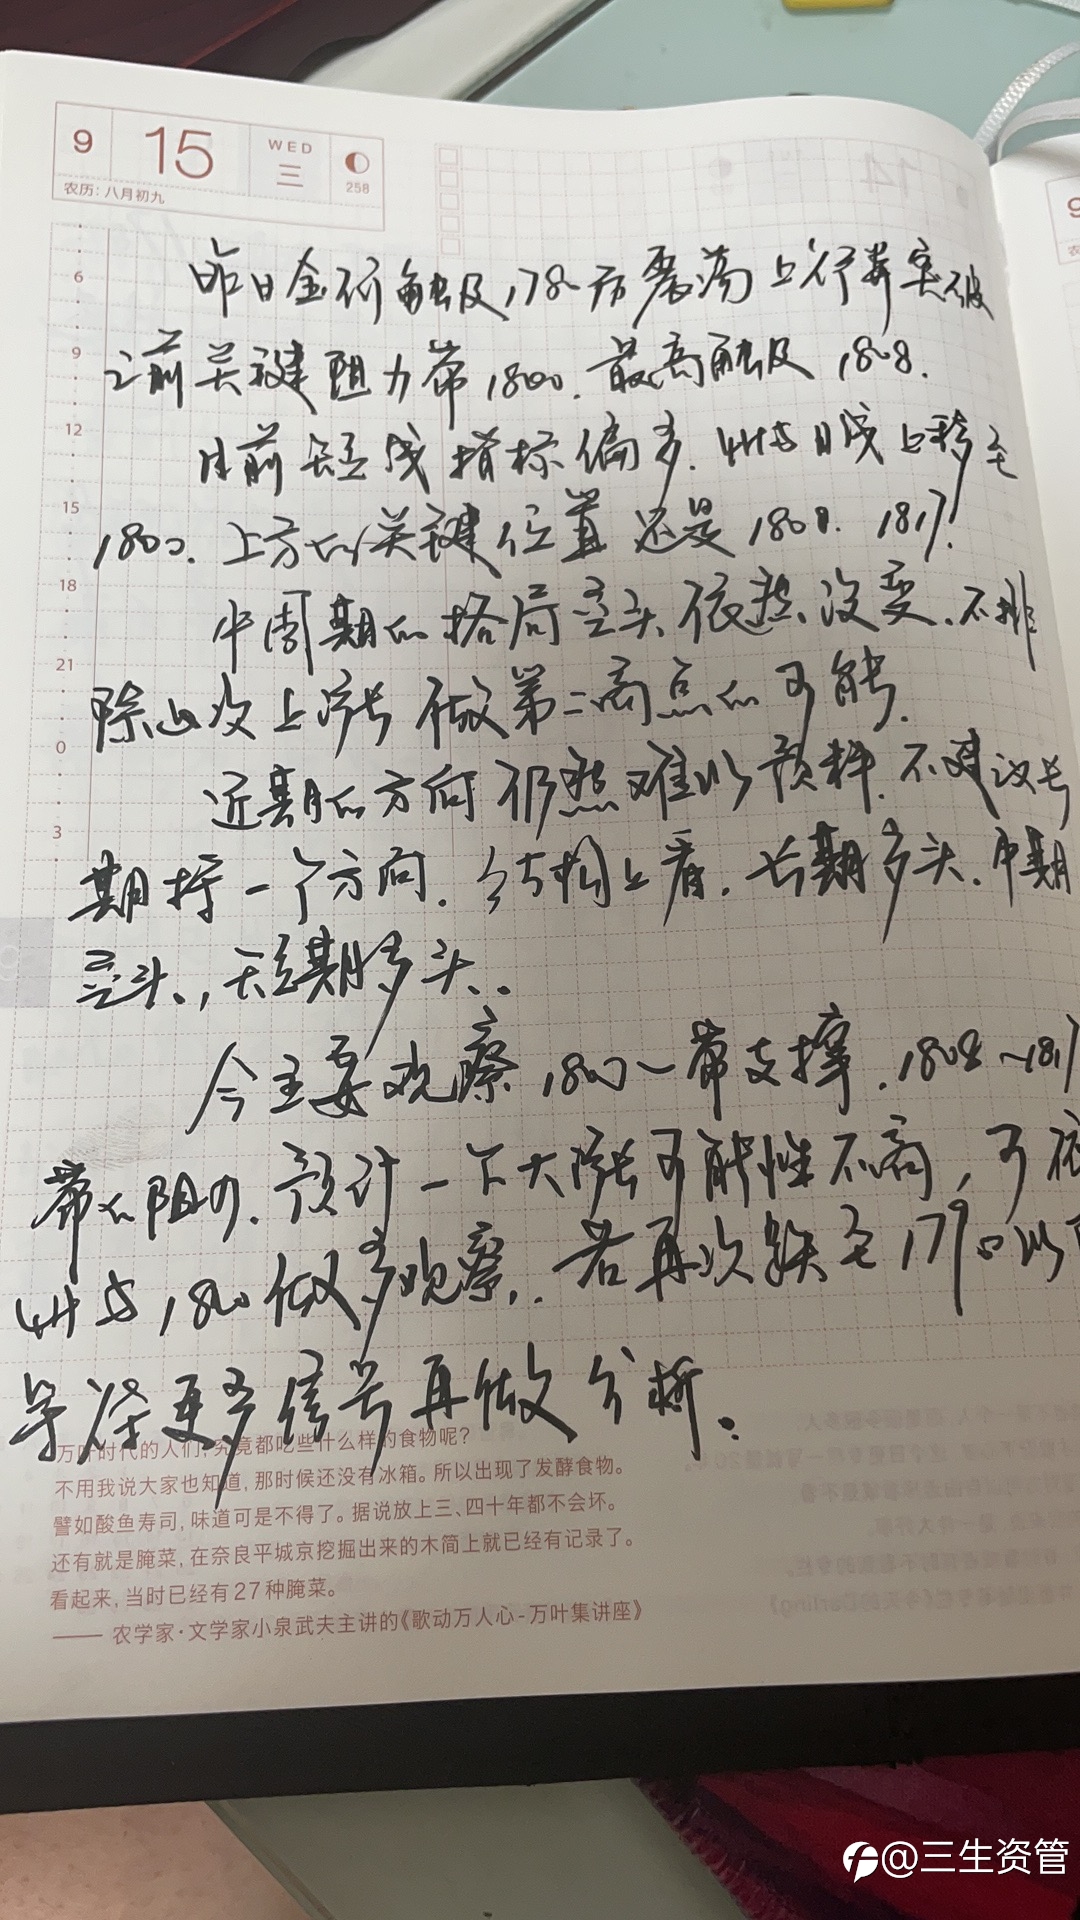 9 15 WED 三 258
农历：八月初九
昨日金价触及178 后震荡上行并突破
6
之前关键阻力带1800. 最高触及1808.
9
目前短线指标偏多. 4H与日线上移至
12
1800. 上方的关键位置还是1808. 1817!
15
中周期的格局空头依然没变. 不排
18
除此次上涨做第二高点的可能.
21
近期的方向仍然难以预料. 不建议长
0
期持一个方向. 结构上看. 长期多头. 中期
3
空头, 短期多头.
今主要观察1800一带支撑. 1808~1817
带的阻力. 预计一下大涨可能性不高, 可依
4H与1800做多观察. 若再次跌至1790以
等待更多信号再做分析。
万叶时代的人们，究竟都吃些什么样的食物呢？
不用我说大家也知道，那时候还没有冰箱。所以出现了发酵食物。
譬如酸鱼寿司，味道可是不得了。据说放上三、四十年都不会坏。
还有就是腌菜，在奈良平城京挖掘出来的木简上就已经有记录了。
看起来，当时已经有27种腌菜。
—— 农学家·文学家小泉武夫主讲的《歌动万人心-万叶集讲座》
@三生资管